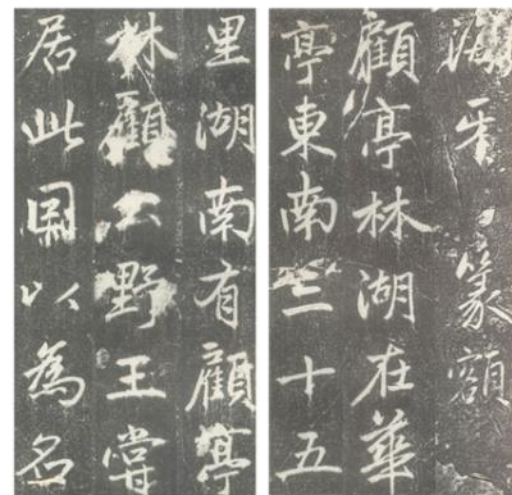 海牙篆額
顧亭林湖在華
亭東南三十五
里湖南有顧亭
林顧公野王嘗
居此因以為名